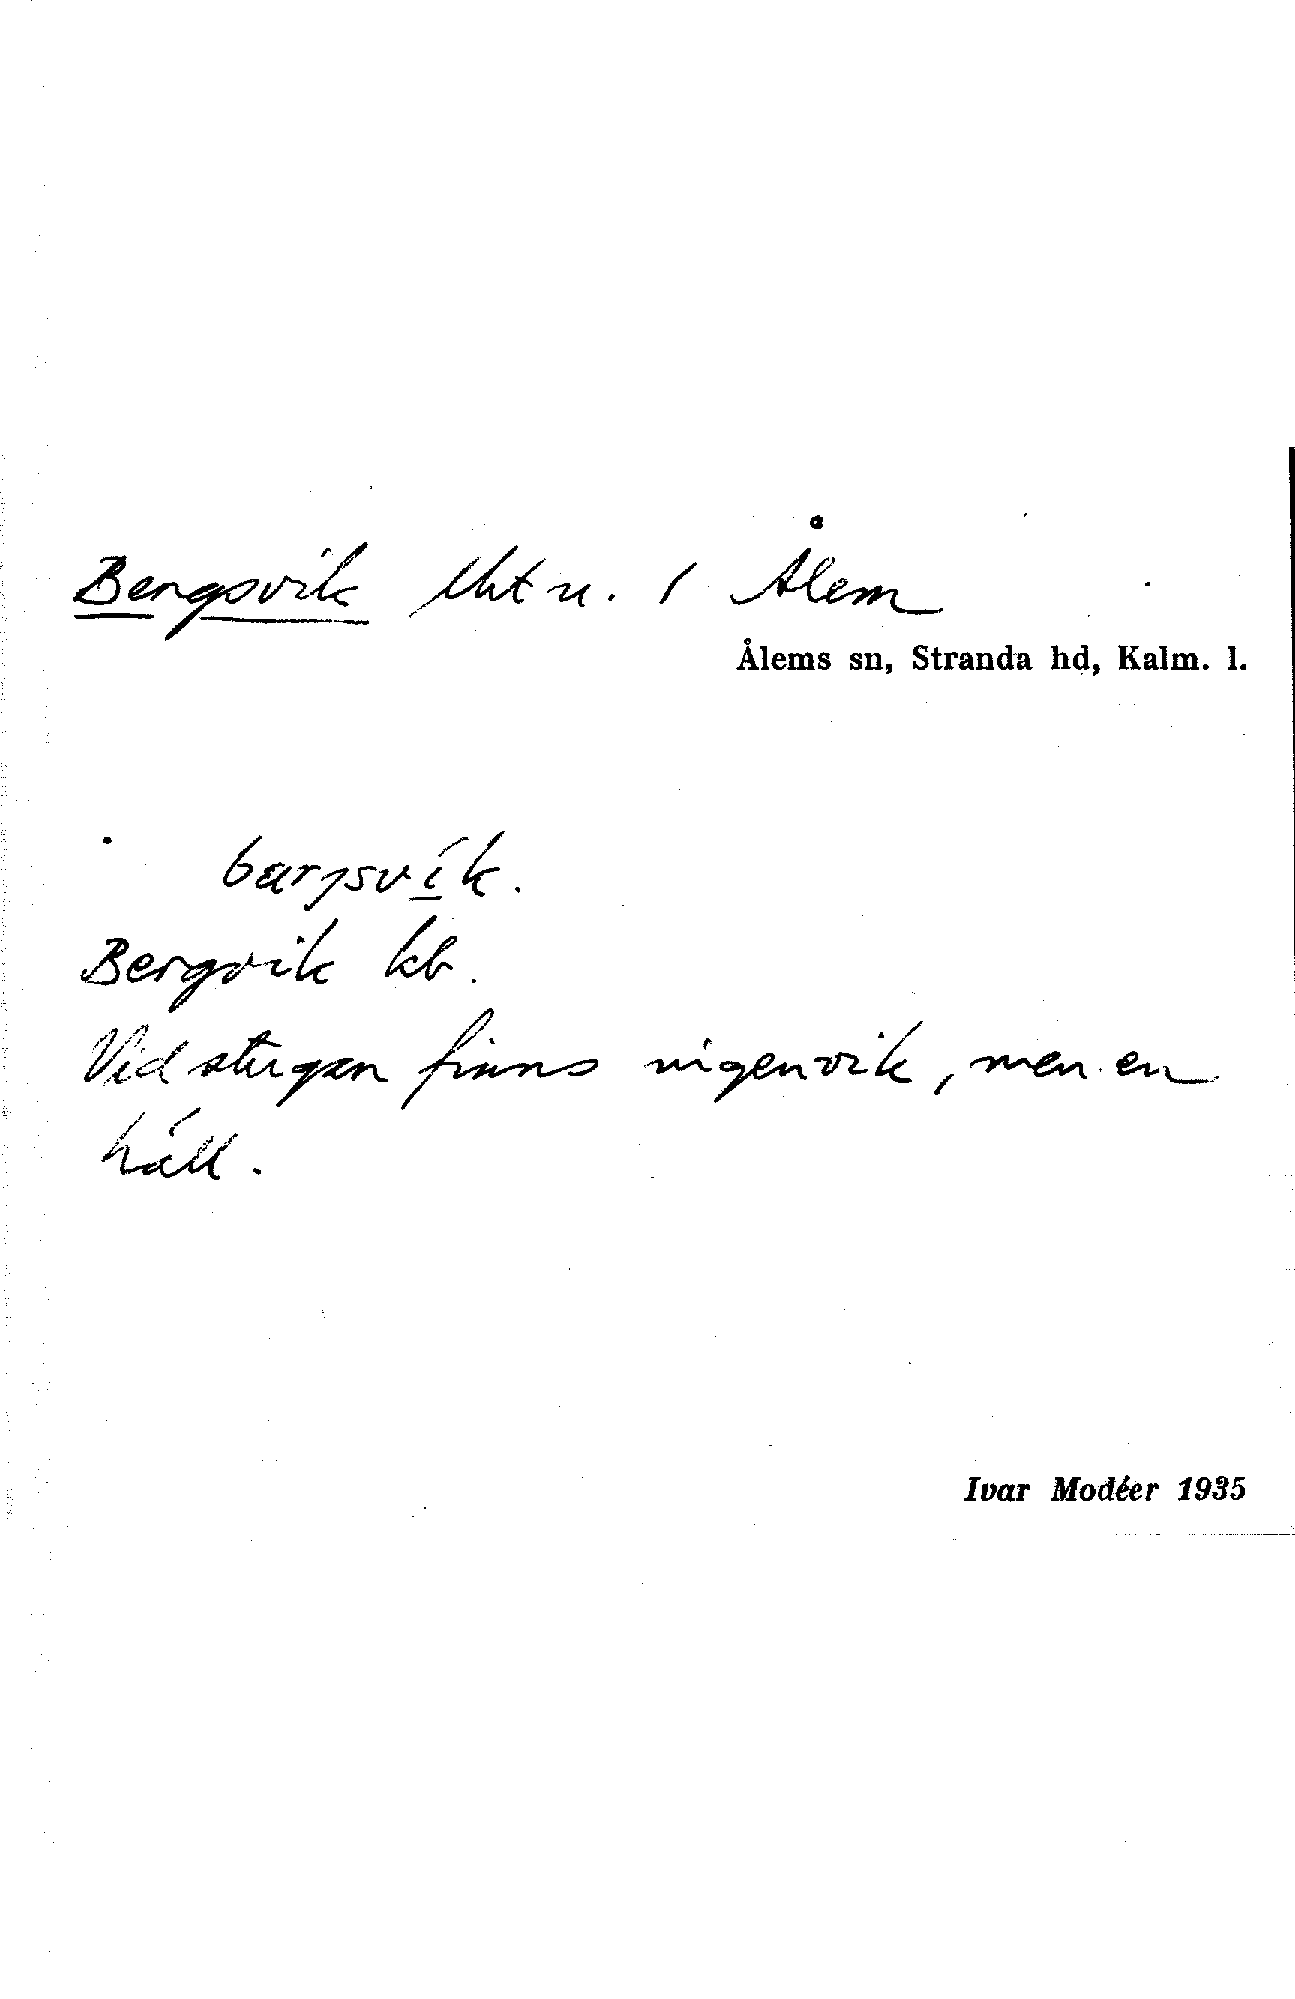 Bergsvik lht u. 1 Ålem
Ålems sn, Stranda hd, Kalm. l.
bærjsvík.
Bergvik kb.
Vid stugan finns ingen vik, men en
häll.
Ivar Modéer 1935